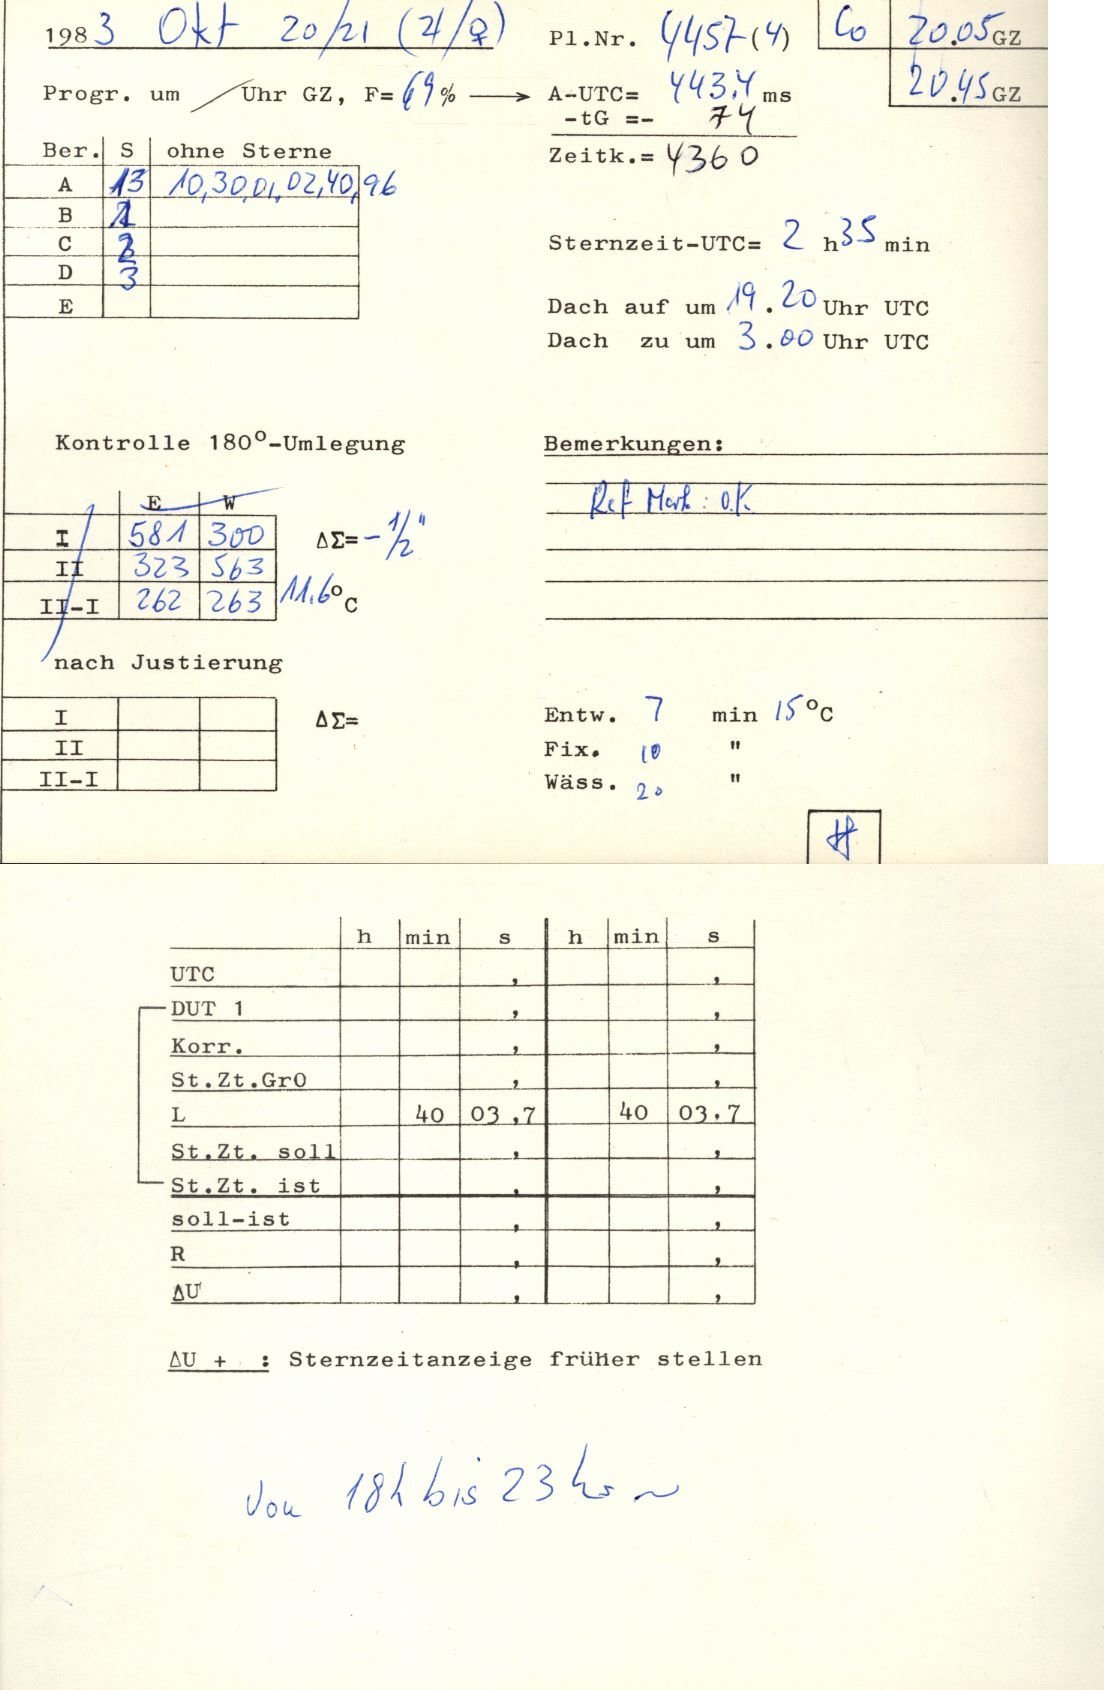 1983 Okt 20/21 (♃/♀) Pl.Nr. 4457(4) Co 20.05 GZ
20.45 GZ
Progr. um / Uhr GZ, F= 69% → A-UTC= 443.4 ms
-tG =- 74
Ber. S ohne Sterne Zeitk.= 4360
A 13 10,30,01,02,40,96
B
C Sternzeit-UTC= 2 h 35 min
D 3
E
Dach auf um 19.20 Uhr UTC
Dach zu um 3.00 Uhr UTC
Kontrolle 180°-Umlegung Bemerkungen:
E W Ref Mark: O.K
I 581 300 ΔΣ= -1/2"
II 323 563
II-I 262 263 11.6°C
nach Justierung
I ΔΣ= Entw. 7 min 15°C
II Fix. 10 "
II-I Wäss. 20 "
h min s h min s
UTC , ,
DUT 1 , ,
Korr. , ,
St.Zt.Gr0 , ,
L 40 03,7 40 03,7
St.Zt. soll , ,
St.Zt. ist , ,
soll-ist , ,
R , ,
ΔU , ,
ΔU + : Sternzeitanzeige früher stellen
Von 18h bis 23h